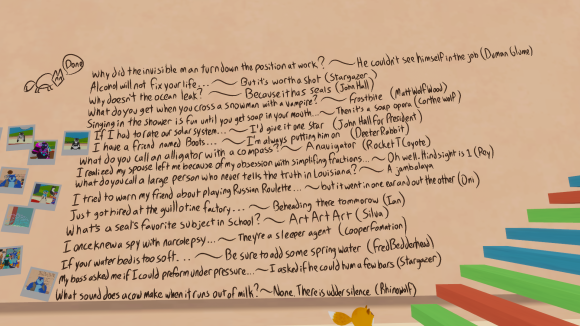 Dann
Why did the invisible man turn down the position at work? ~ He couldn't see himself in the job (Duman Glume)
Alcohol will not fix your life... ~ But it's worth a shot (Stargazer)
Why doesn't the ocean leak? ~ Because it has seals (John Hall)
What do you get when you cross a snowman with a vampire? ~ Frostbite (Matt Wolf Wood)
Singing in the shower is fun until you get soap in your mouth... ~ Then it's a soap opera (Cort he wolf)
If I had to rate our solar system... ~ I'd give it one star (John Hall for President)
I have a friend named Boots... ~ I'm always putting him on (Deeter Rabbit)
What do you call an alligator with a compass? ~ A navigator (Rocket T Coyote)
I realized my spouse left me because of my obsession with simplifing fractions... ~ Oh well. Hindsight is 1 (Rey)
What do you call a large person who never tells the truth in Louisiana? ~ A jambalaya
I tried to warn my friend about playing Russian Roulette... ~ but it went in one ear and out the other (Oni)
Just got hired at the guillotine factory... ~ Beheading there tommorow (Ian)
What's a seal's favorite subject in School? ~ Art Art Art (Silva)
I once knew a spy with narcolepsy... ~ They're a sleeper agent (cooperfomation)
If your water bed is too soft... ~ Be sure to add some spring water (fred Bedderhead)
My boss asked me if I could preform under pressure... ~ I asked if he could hum a few bars (Stargazer)
What sound does a cow make when it runs out of milk? ~ None. There is udder silence (Rhinowolf)